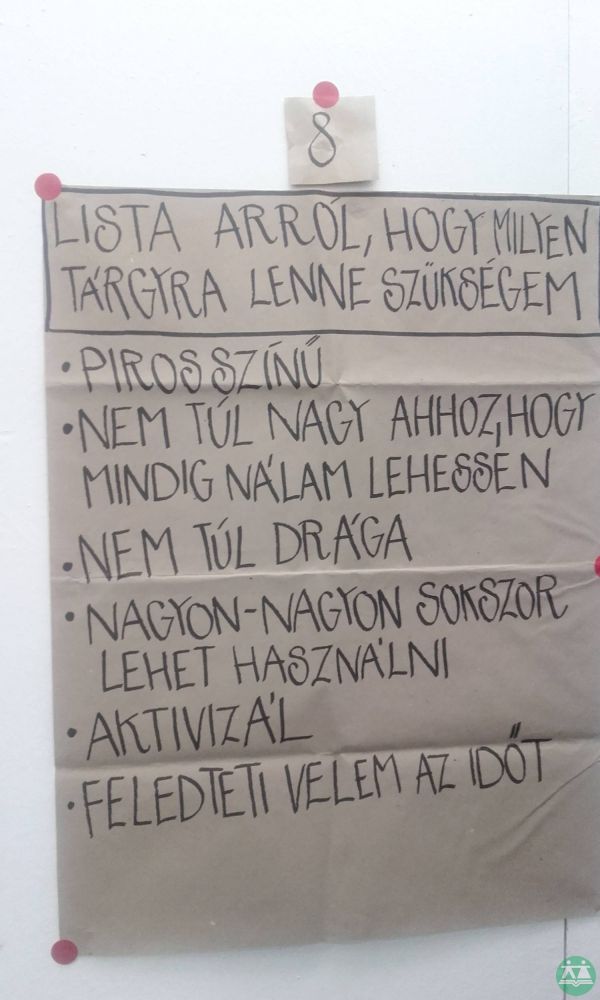 8
LISTA ARRÓL, HOGY MILYEN
TÁRGYRA LENNE SZÜKSÉGEM
• PIROS SZÍNŰ
• NEM TÚL NAGY AHHOZ, HOGY
MINDIG NÁLAM LEHESSEN
• NEM TÚL DRÁGA
• NAGYON-NAGYON SOKSZOR
LEHET HASZNÁLNI
• AKTIVIZÁL
• FELEDTETI VELEM AZ IDŐT